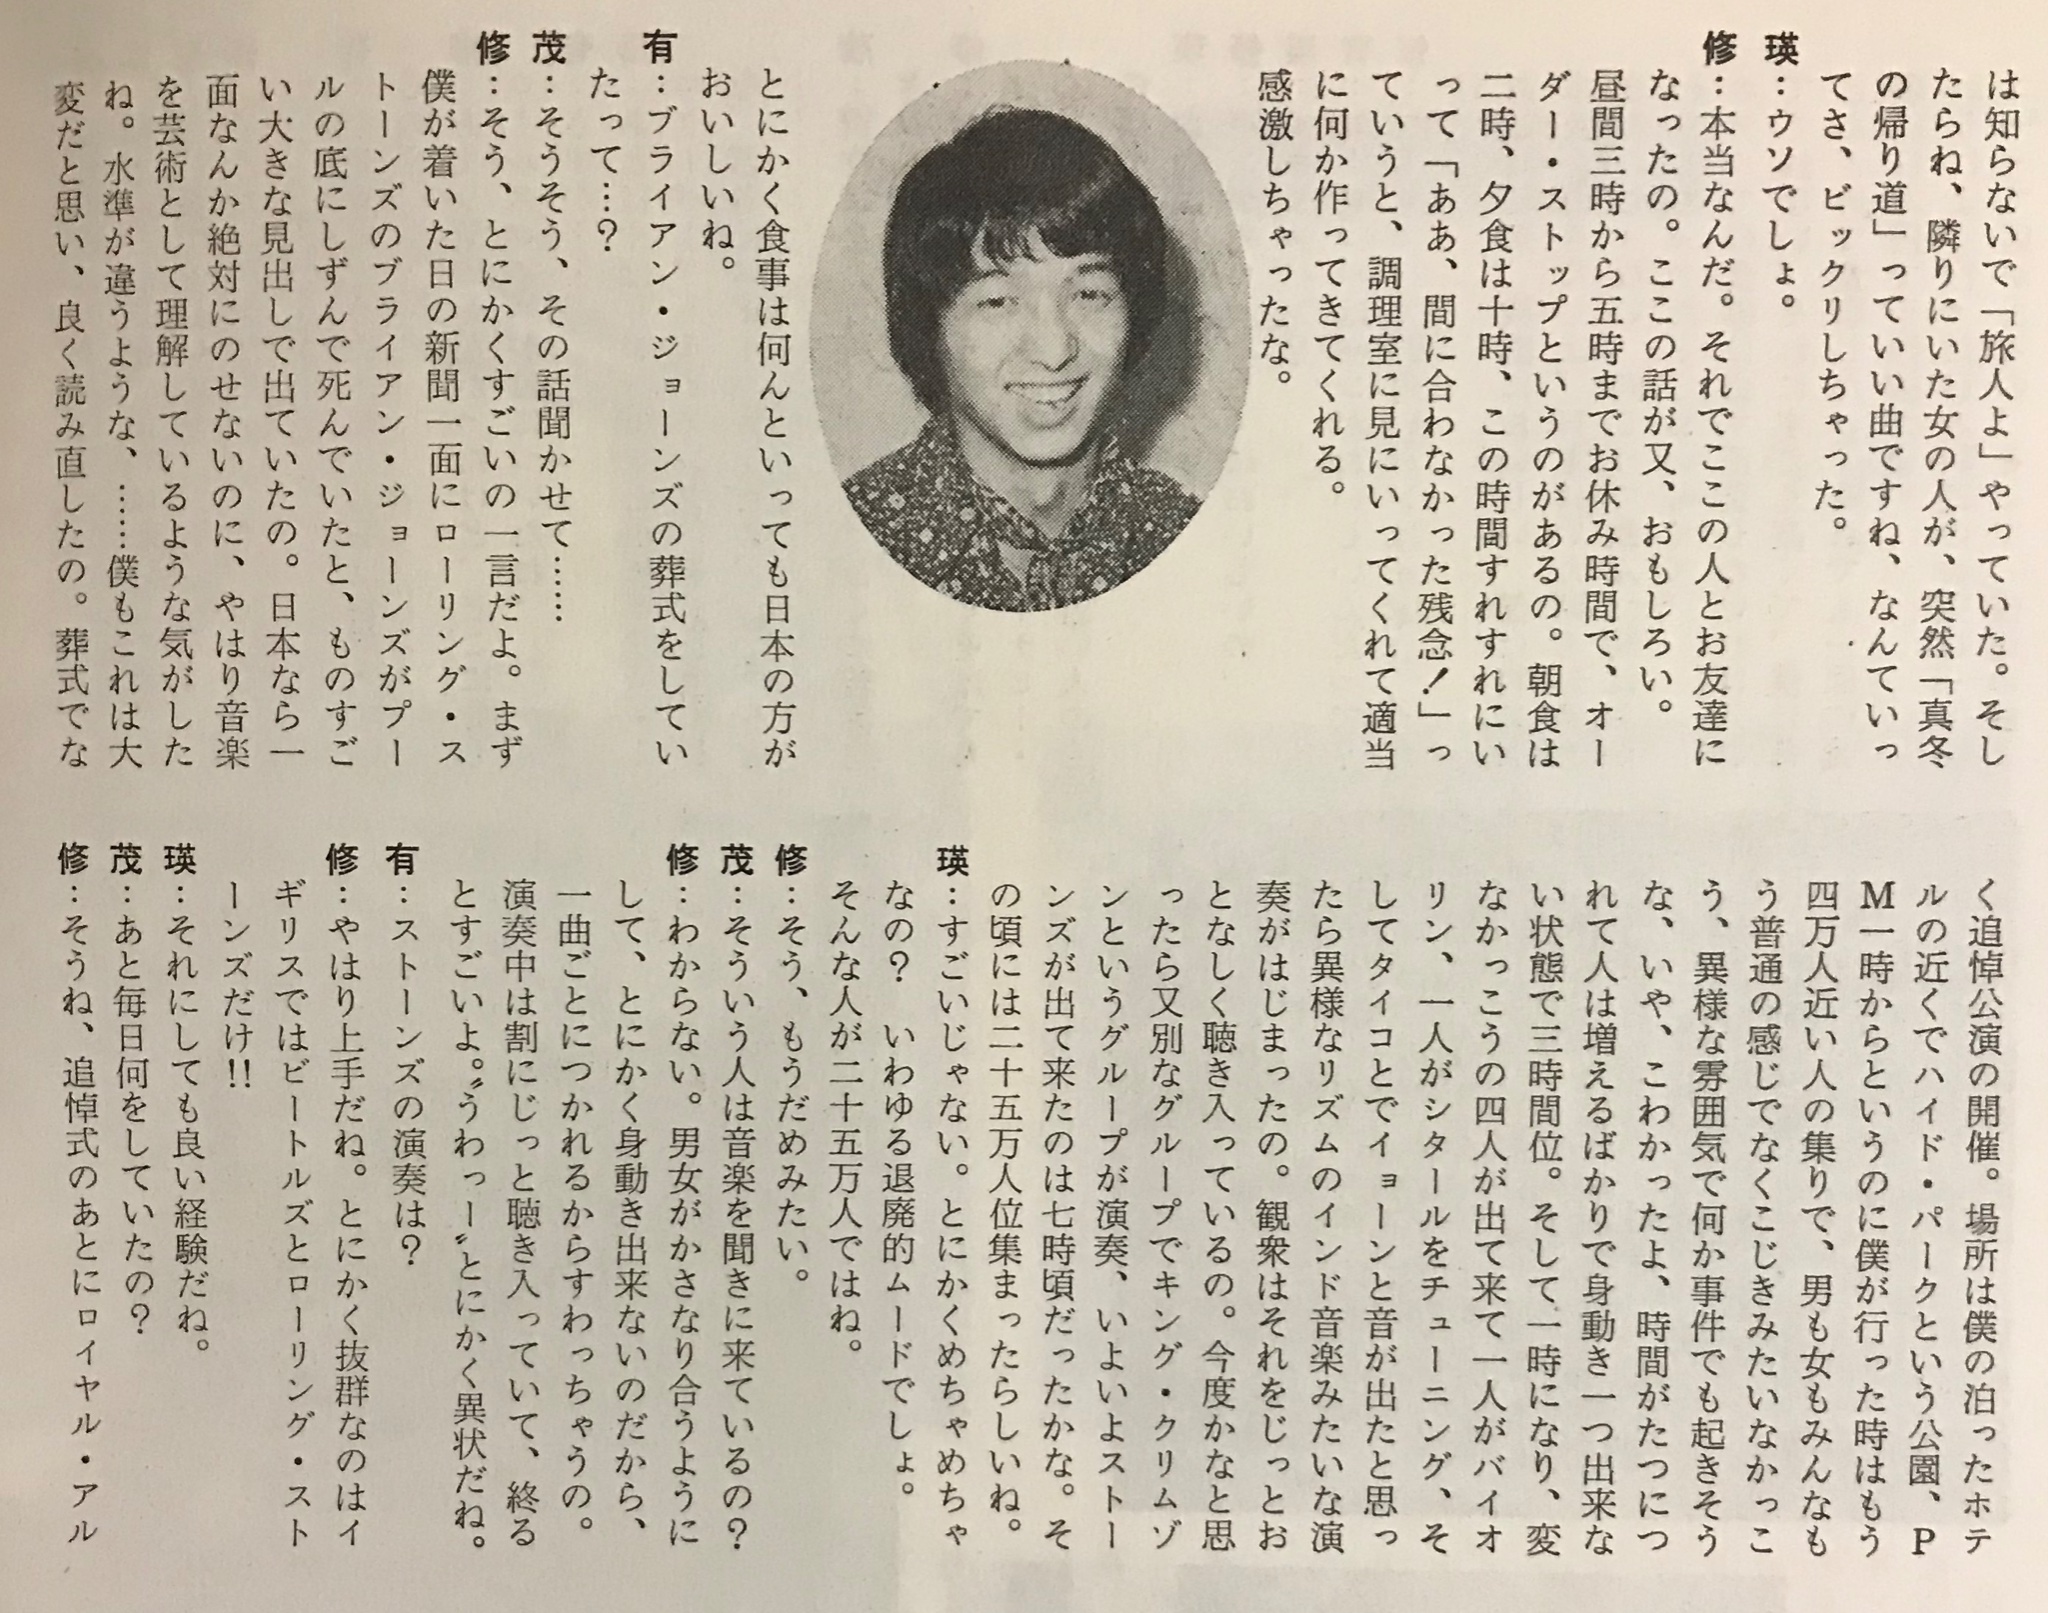 は知らないで「旅人よ」やっていた。そし
たらね、隣りにいた女の人が、突然「真冬
の帰り道」っていい曲ですね、なんていっ
てさ、ビックリしちゃった。
瑛：ウソでしょ。
修：本当なんだ。それでここの人とお友達に
なったの。ここの話が又、おもしろい。
昼間三時から五時までお休み時間で、オー
ダー・ストップというのがあるの。朝食は
二時、夕食は十時、この時間すれすれにい
って「ああ、間に合わなかった残念！」っ
ていうと、調理室に見にいってくれて適当
に何か作ってきてくれる。
感激しちゃったな。
とにかく食事は何んといっても日本の方が
おいしいね。
有：ブライアン・ジョーンズの葬式をしてい
たって…？
茂：そうそう、その話聞かせて……
修：そう、とにかくすごいの一言だよ。まず
僕が着いた日の新聞一面にローリング・ス
トーンズのブライアン・ジョーンズがプー
ルの底にしずんで死んでいたと、ものすご
い大きな見出しで出ていたの。日本なら一
面なんか絶対にのせないのに、やはり音楽
を芸術として理解しているような気がした
ね。水準が違うような、……僕もこれは大
変だと思い、良く読み直したの。葬式でな
く追悼公演の開催。場所は僕の泊ったホテ
ルの近くでハイド・パークという公園、P
M一時からというのに僕が行った時はもう
四万人近い人の集りで、男も女もみんなも
う普通の感じでなくこじきみたいなかっこ
う、異様な雰囲気で何か事件でも起きそう
な、いや、こわかったよ、時間がたつにつ
れて人は増えるばかりで身動き一つ出来な
い状態で三時間位。そして一時になり、変
なかっこうの四人が出て来て一人がバイオ
リン、一人がシタールをチューニング、そ
してタイコとでイョーンと音が出たと思っ
たら異様なリズムのインド音楽みたいな演
奏がはじまったの。観衆はそれをじっとお
となしく聴き入っているの。今度かなと思
ったら又別なグループでキング・クリムゾ
ンというグループが演奏、いよいよストー
ンズが出て来たのは七時頃だったかな。そ
の頃には二十五万人位集まったらしいね。
瑛：すごいじゃない。とにかくめちゃめちゃ
なの？　いわゆる退廃的ムードでしょ。
そんな人が二十五万人ではね。
修：そう、もうだめみたい。
茂：そういう人は音楽を聞きに来ているの？
修：わからない。男女がかさなり合うように
して、とにかく身動き出来ないのだから、
一曲ごとにつかれるからすわっちゃうの。
演奏中は割にじっと聴き入っていて、終る
とすごいよ。〝うわっー〟とにかく異状だね。
有：ストーンズの演奏は？
修：やはり上手だね。とにかく抜群なのはイ
ギリスではビートルズとローリング・スト
ーンズだけ!!
瑛：それにしても良い経験だね。
茂：あと毎日何をしていたの？
修：そうね、追悼式のあとにロイヤル・アル